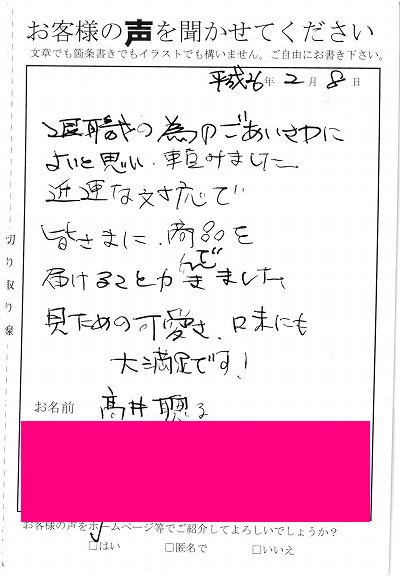 お客様の声を聞かせてください
文章でも箇条書きでもイラストでも構いません。ご自由にお書き下さい。
平成26年 2月 8日
退職の為のごあいさつに
よいと思い、頼みました
迅速な対応で
皆さまに、商品を
届けることができました
見ための可愛さ、口味にも
大満足です!
お名前 高井
お客様の声をホームページ等でご紹介してよろしいでしょうか?
□はい □匿名で □いいえ
切り取り線